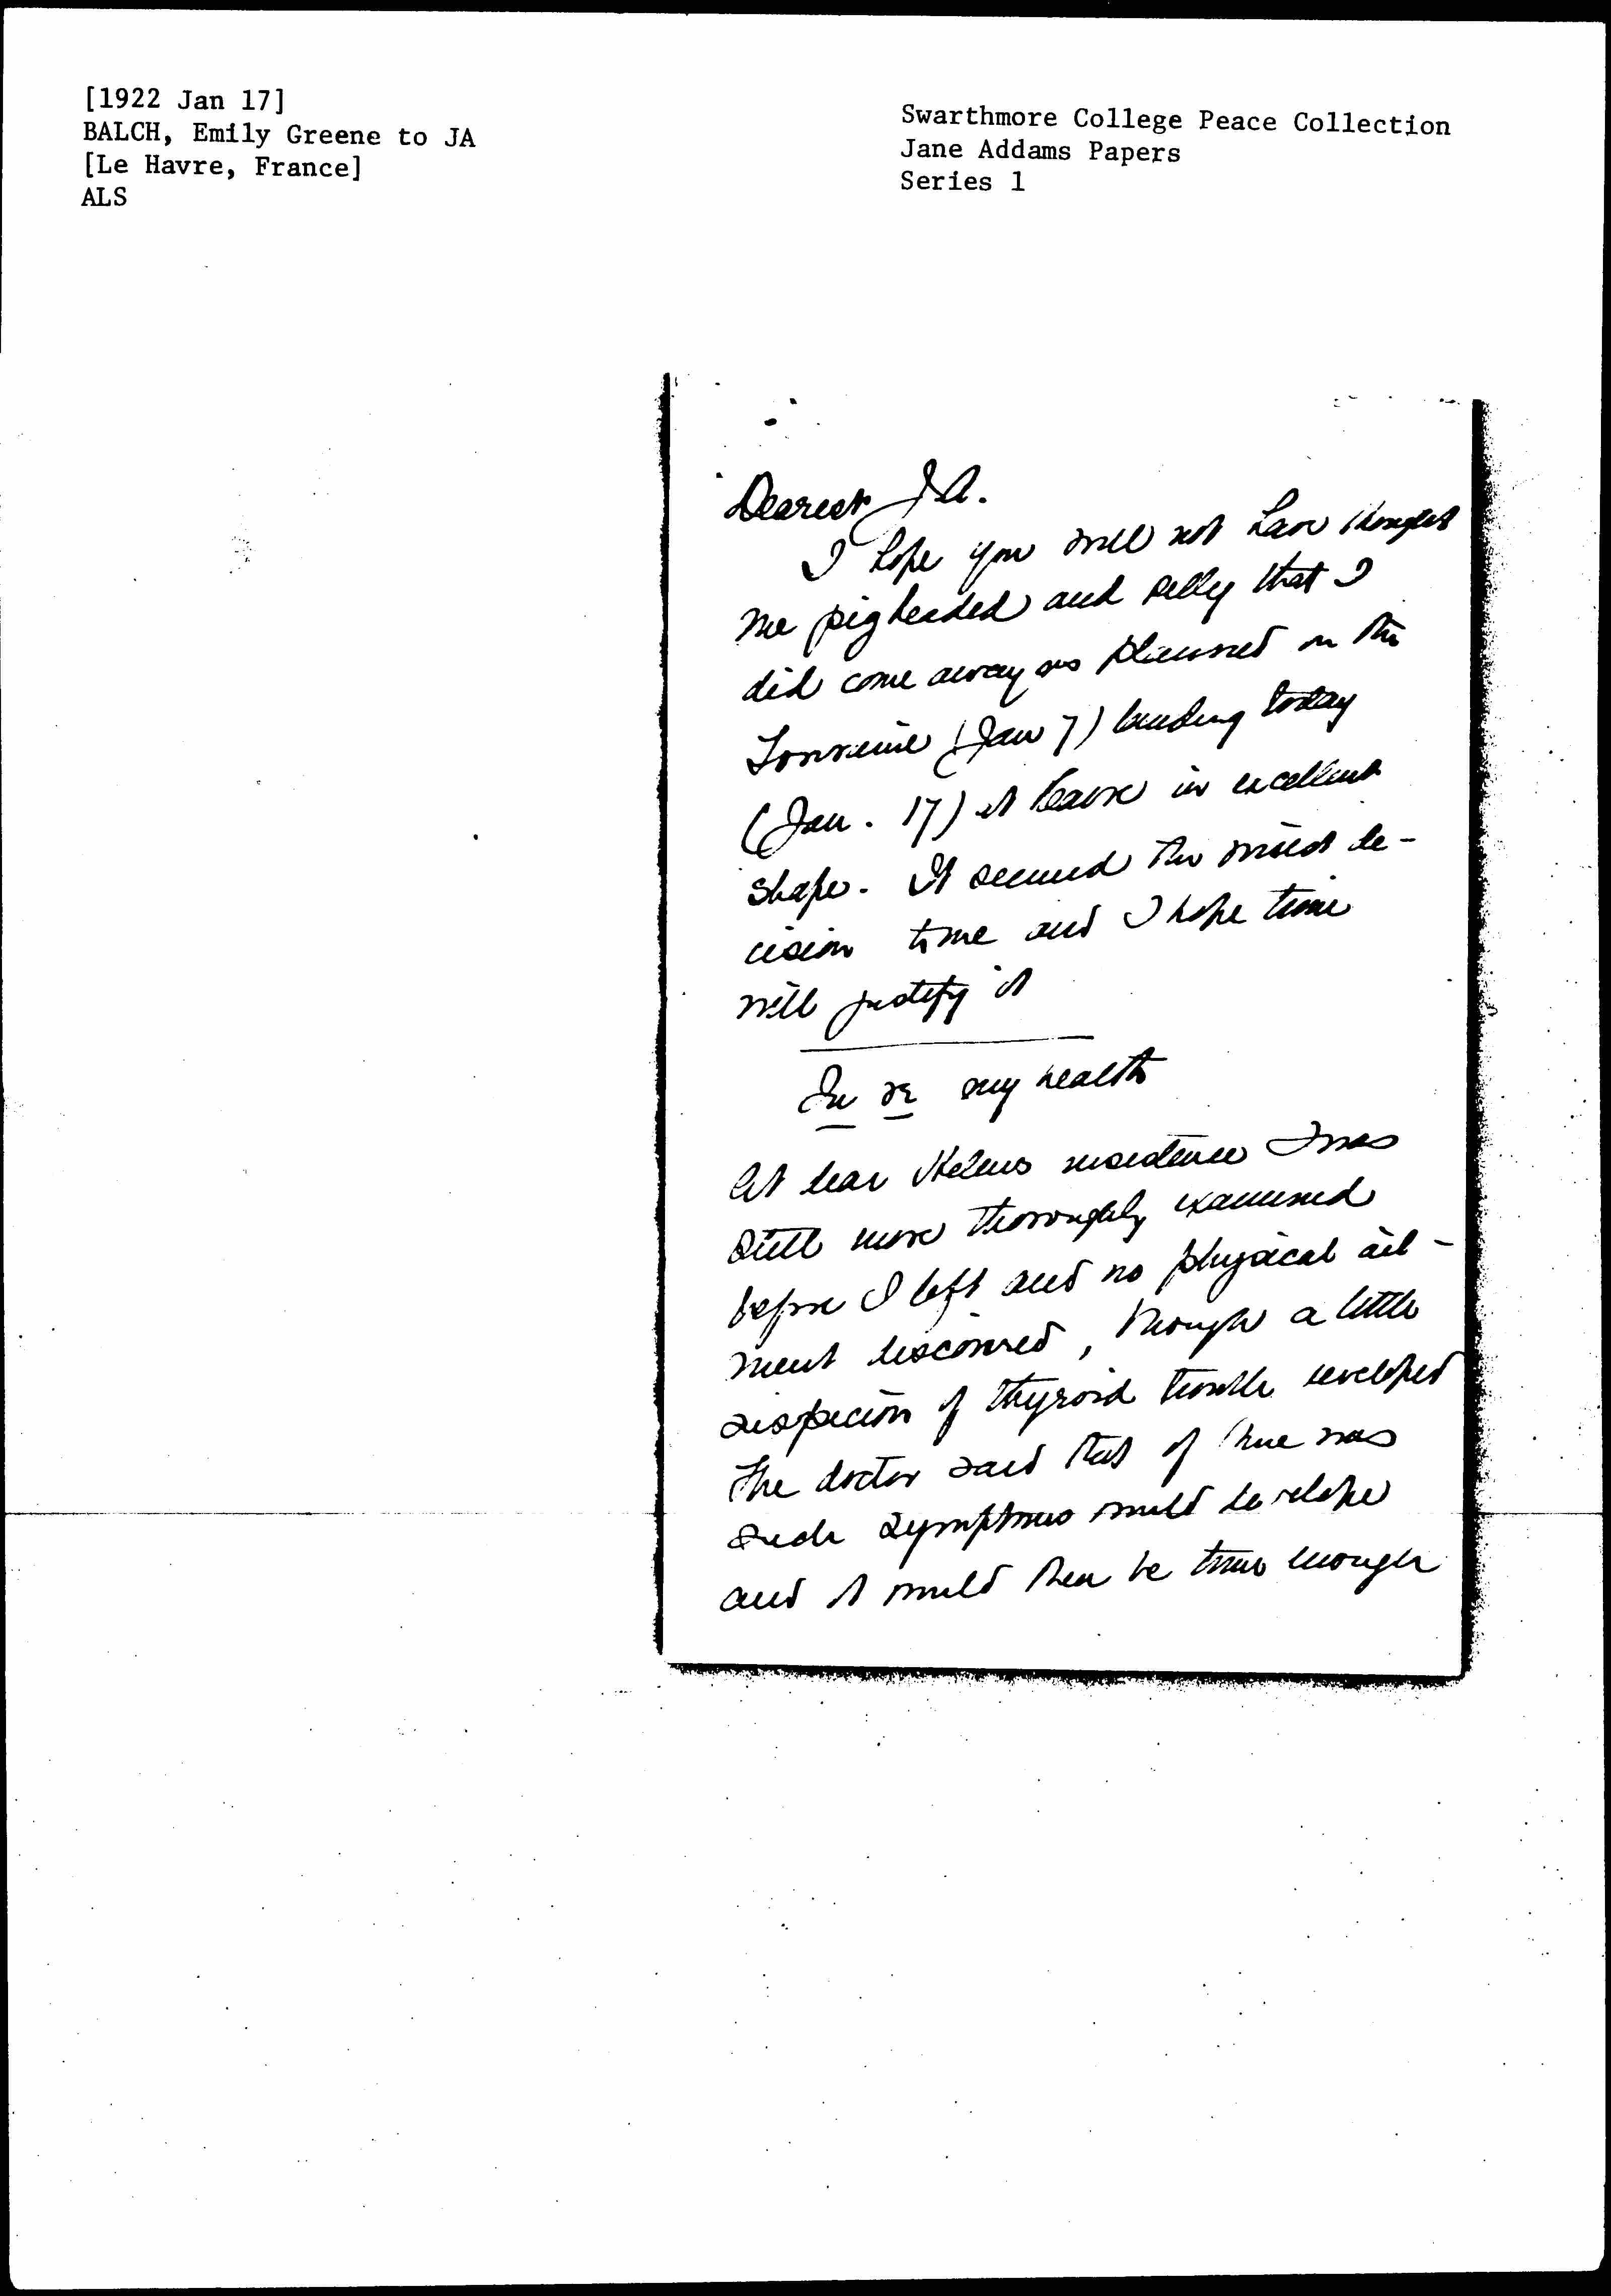 [1922 Jan 17]
BALCH, Emily Greene to JA
[Le Havre, France]
ALS
Swarthmore College Peace Collection
Jane Addams Papers
Series 1
Dearest J A.
I hope you will not have thought
me pigheaded and silly that I
did come away as planned on the
Lorraine (Jan 7) landing today
(Jan. 17) at Havre in excellent
shape. It seemed the wisest de-
cision to me and I hope time
will justify it
In re my health
At dear Helens insistence I was
still more thoroughly examined
before I left and no physical ail-
ment discovered, though a little
suspicion of thyroid trouble developed
The doctor said that if there was
such symptoms would develope
and it would then be time enough